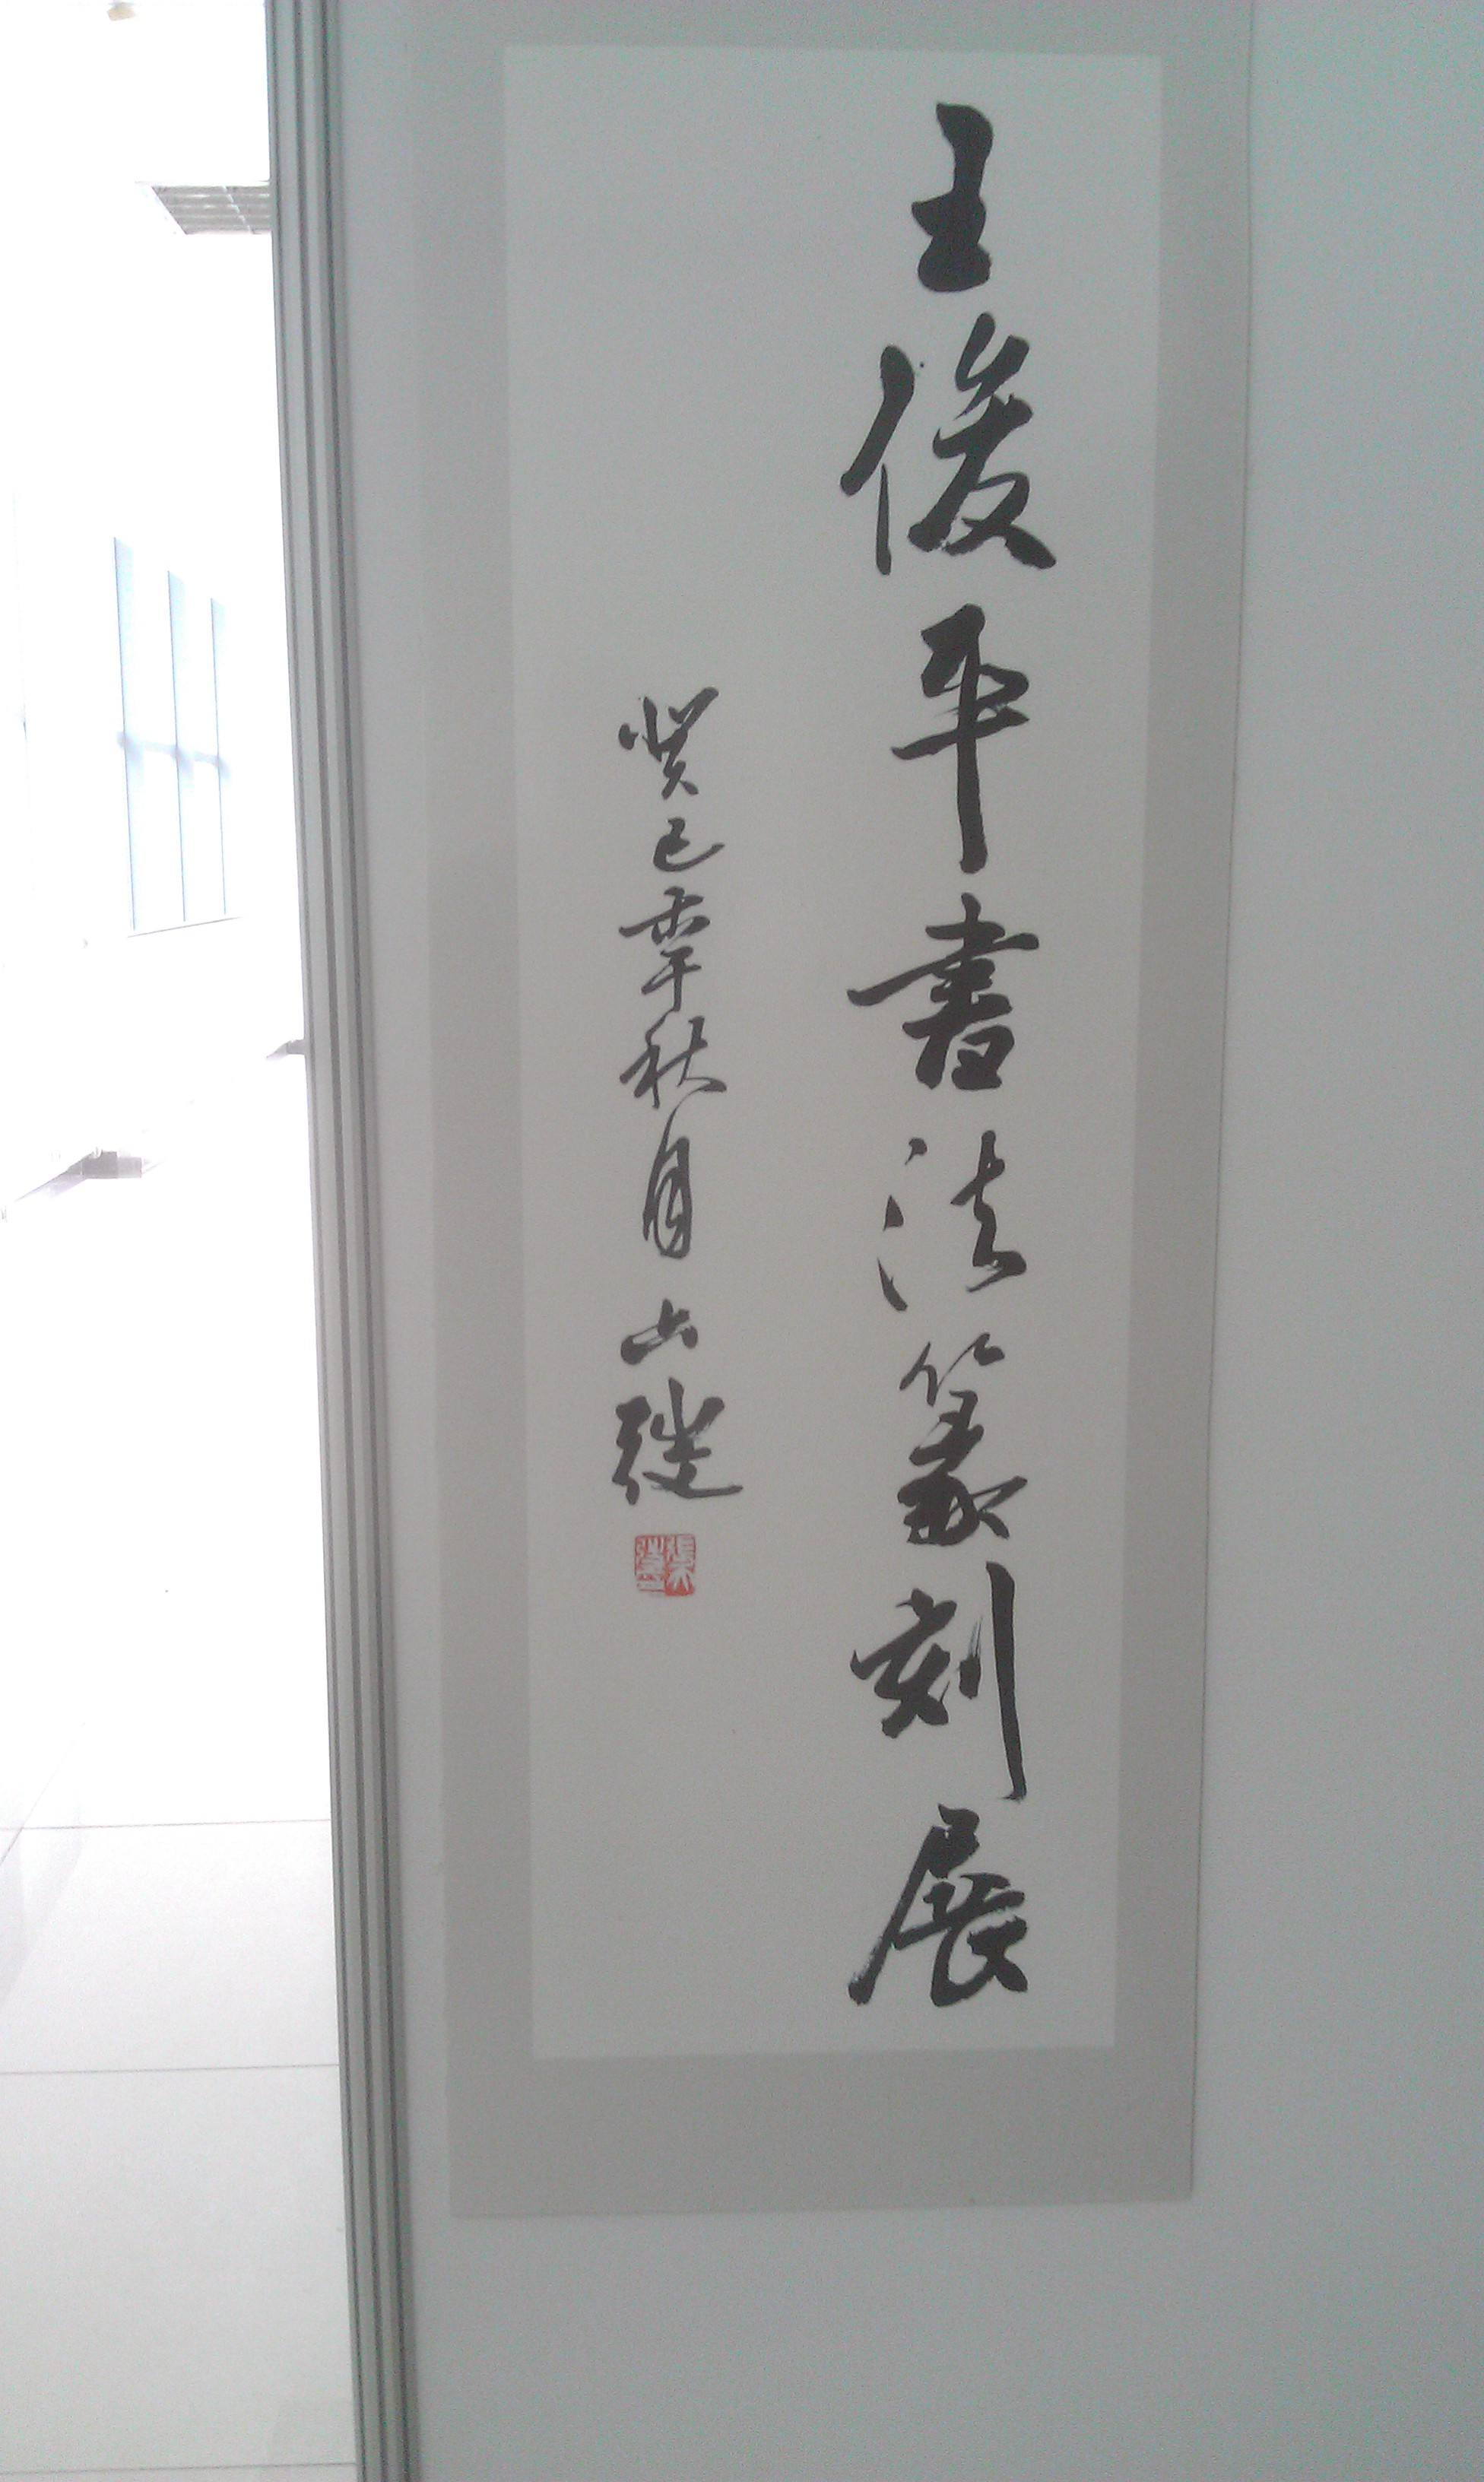 王俊平書法篆刻展
癸巳季秋月